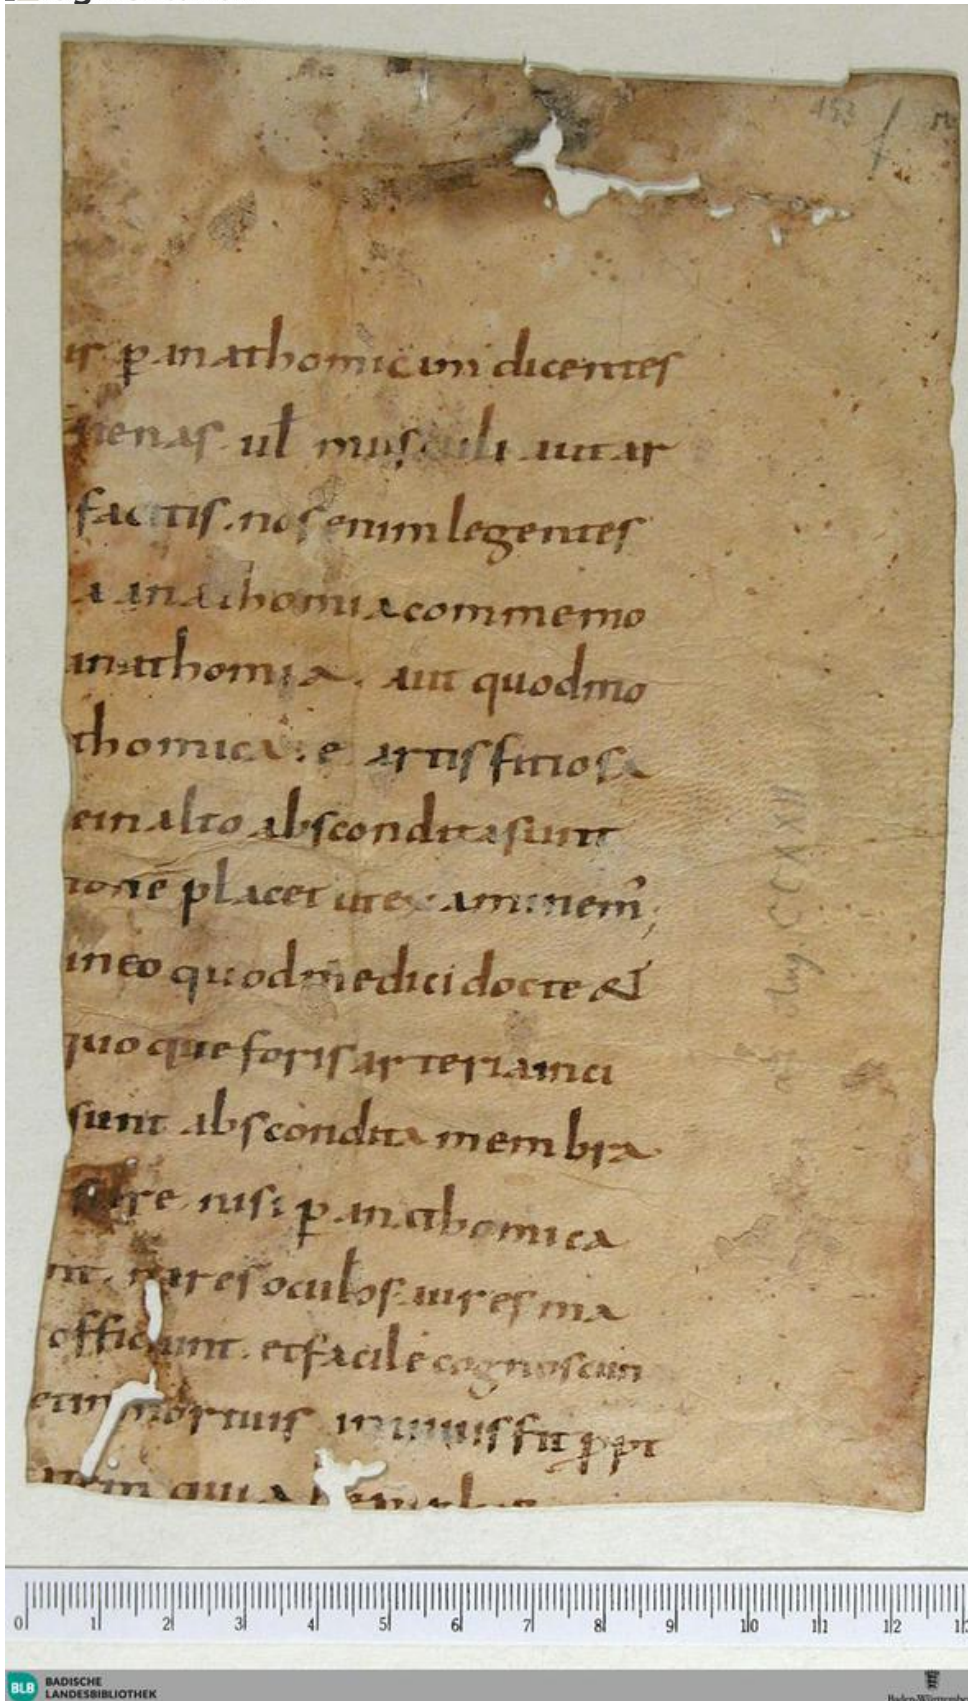 is p anathomicum dicentes
uenas ul musculi aut ar
facitis. nos enim legentes
a anathomia commemo
anathomia. aut quodmo
thomica. e artis fitiosa
ein alto abscondita sunt
ione placet ut examinem;
in eo quod medici docte &
quoque foris arteria inci
sunt abscondita membra
nisi p anathomica
nt. nares oculos aures ma
officiunt. et facile cognoscun
et in mortuis in uiuis fit ppt
quia
0 1 2 3 4 5 6 7 8 9 10 11 12
BLB BADISCHE
LANDESBIBLIOTHEK